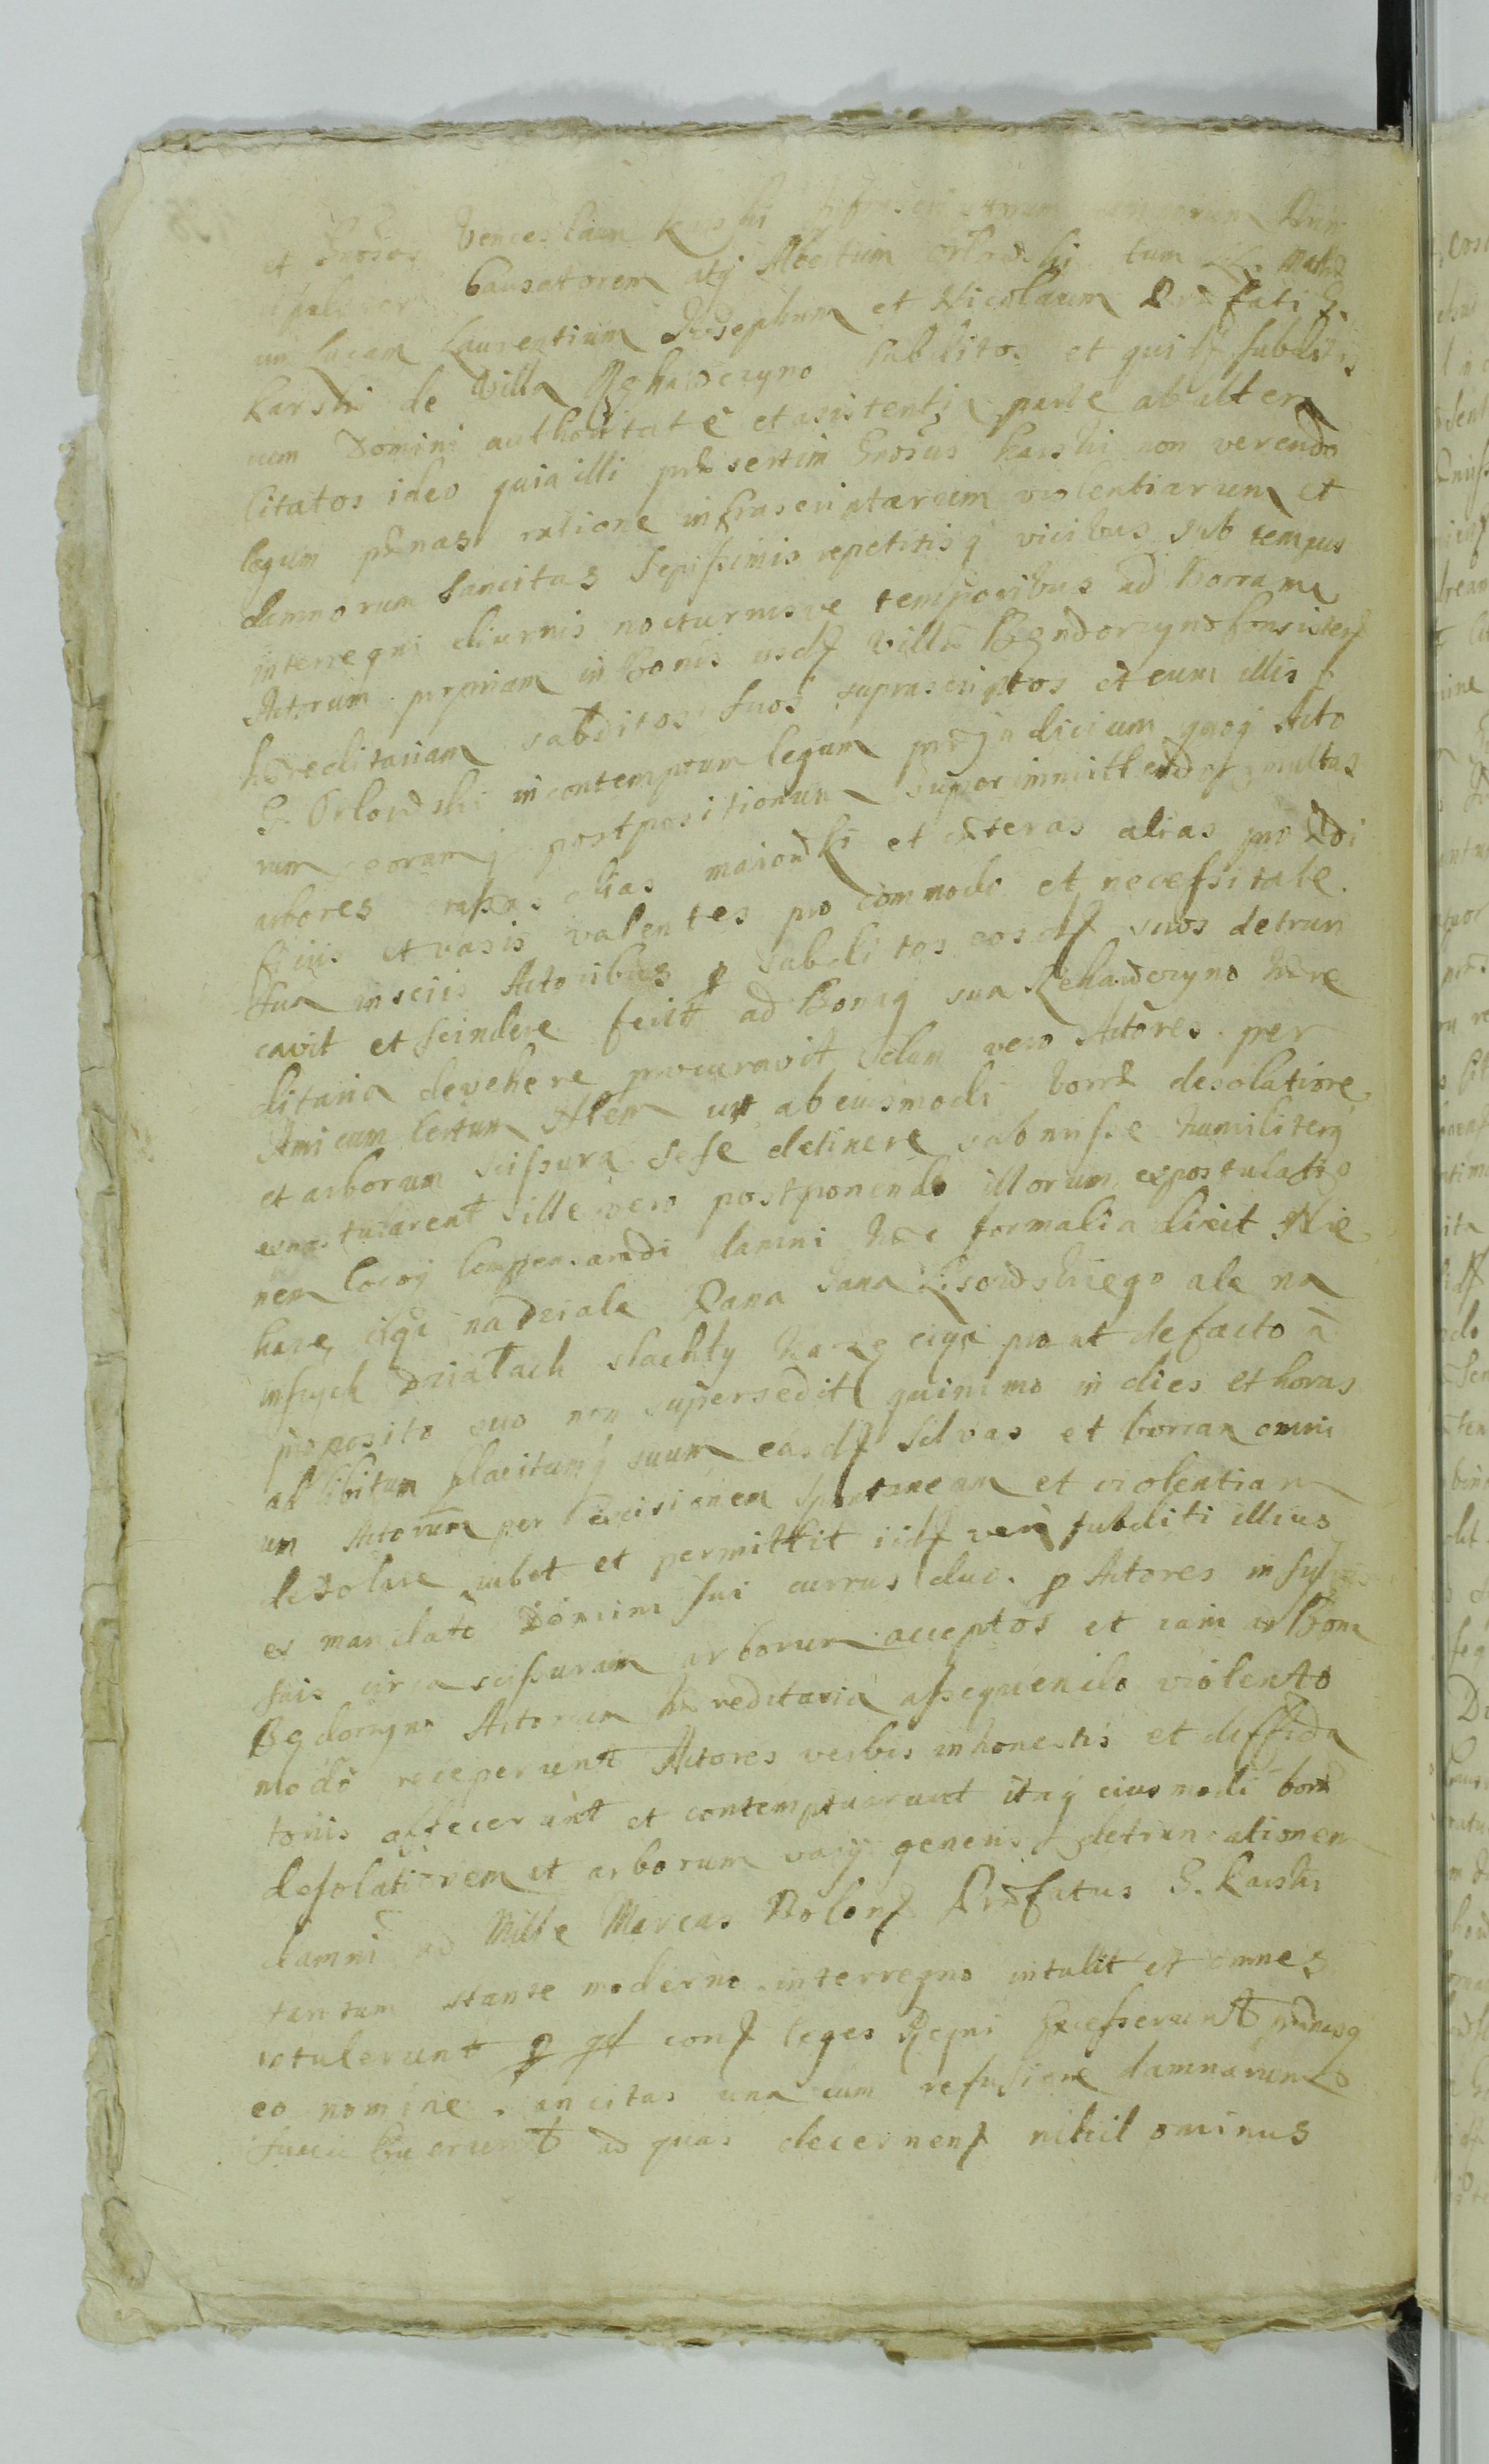 et Grosos Venceslaum Karski infrascriptorum damnorum Prin
cipalem Causatorem atq Albertum Orlowski tum LL Math
um Lucam Laurentium Josephum et Nicolaum Præfati G.
Karski de Villa Rehawczyno Subditos et quilf subditos
cum Domini authoritate et asistentia parte ab altera
Citatos ideo quia illi præsertim Grosus Karski non verendo
legum pænas ratione infrascriptarum violentiarum et
damnorum Sancitas Sepissimis repetitisq vicibus sub tempus
interregni diurnis nocturnisve temporibus ad Borram
Actorum propriam in Bonis usdf Villæ Bendorzyno Consistenf
hæreditariam subditos suos suprascriptos et cum illis
G. Orlowski in contemptum legum præjudicium quoq Acto
rum eorumq postpositionum super immittendo multas
arbores crassas alias maiowki et cæteras alias pro ædi
ficiis et vasis valentes pro commodo et necessitate
sua insciis Actoribus p subditos eosdf suos detrun
cavit et scindere fecit ad Bonaq sua Rehawczyno hære
ditaria devehere procuravit dum vero Actores per
Amicum Certum Alem ut ab eiusmodi borræ desolatione
et arborum scissura sese detinere submisse humiliterq
expostularent ille vero postponendo illorum expostulatio
nem locoq Compensandi damni hæc formalia dixit Nie
kaze ciąc na dziale Pana Jana Lisowskiego ale na
inszych działach slachty kaze ciąc prout de facto à
proposito suo non supersedit quinimo in dies et horas
ad libitum placitumq suum easdf silvas et borram omni
um Actorum per excisionem spontaneam et violentiam
desolare iubet et permittit iidf vero subditi illius
ex mandato Domini sui currus duo p Actores in sylvis
suis circa scissuram arborum acceptos et iam ad Bona
Będorzyno Actorum hæreditaria assequendo violento
modo receperunt Actores verbis inhonestis et diffida
toriis affecerunt et contemptuarunt itaq eiusmodi borræ
desolationem et arborum varij generis detruncationem
damni ad Mille Marcas Polonf Præfatus G. Karski
tantum stante moderno interregno intulit et omnes
intulerunt p qd conf leges Regni Excesserunt pænasq
eo nomine sancitas una cum refusione damnorum
succubuerunt ad quas decernenf nihilominus